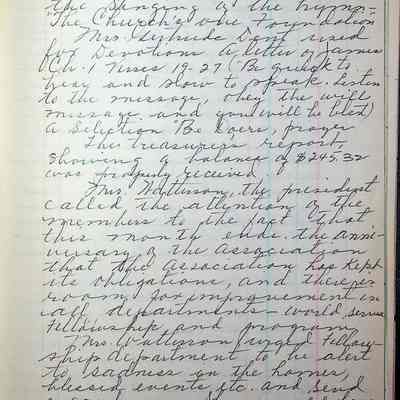 the singing of the hymn-
"The Church's one Foundation
Mrs. Gertrude Dent used
for Devotions a letter of James
Ch. 1 Verses 19-27 (Be quick to
hear and slow to speak. Listen
to the message, obey the will
message and you will be blest)
A Selection "Be Doers, prayer
The treasurers report,
showing a balance of $245.32
was properly received.
Mrs. Watterson, the president
called the attention of the
members to the fact that
this month ends the anni-
versary of the Association
that the Association has kept
its obligations, and there is
room for improvement in
all departments - World Service
Fellowship and program
Mrs. Watterson urged Fellow-
ship department to be alert
to sadness in the homes,
blessed events, etc. and send